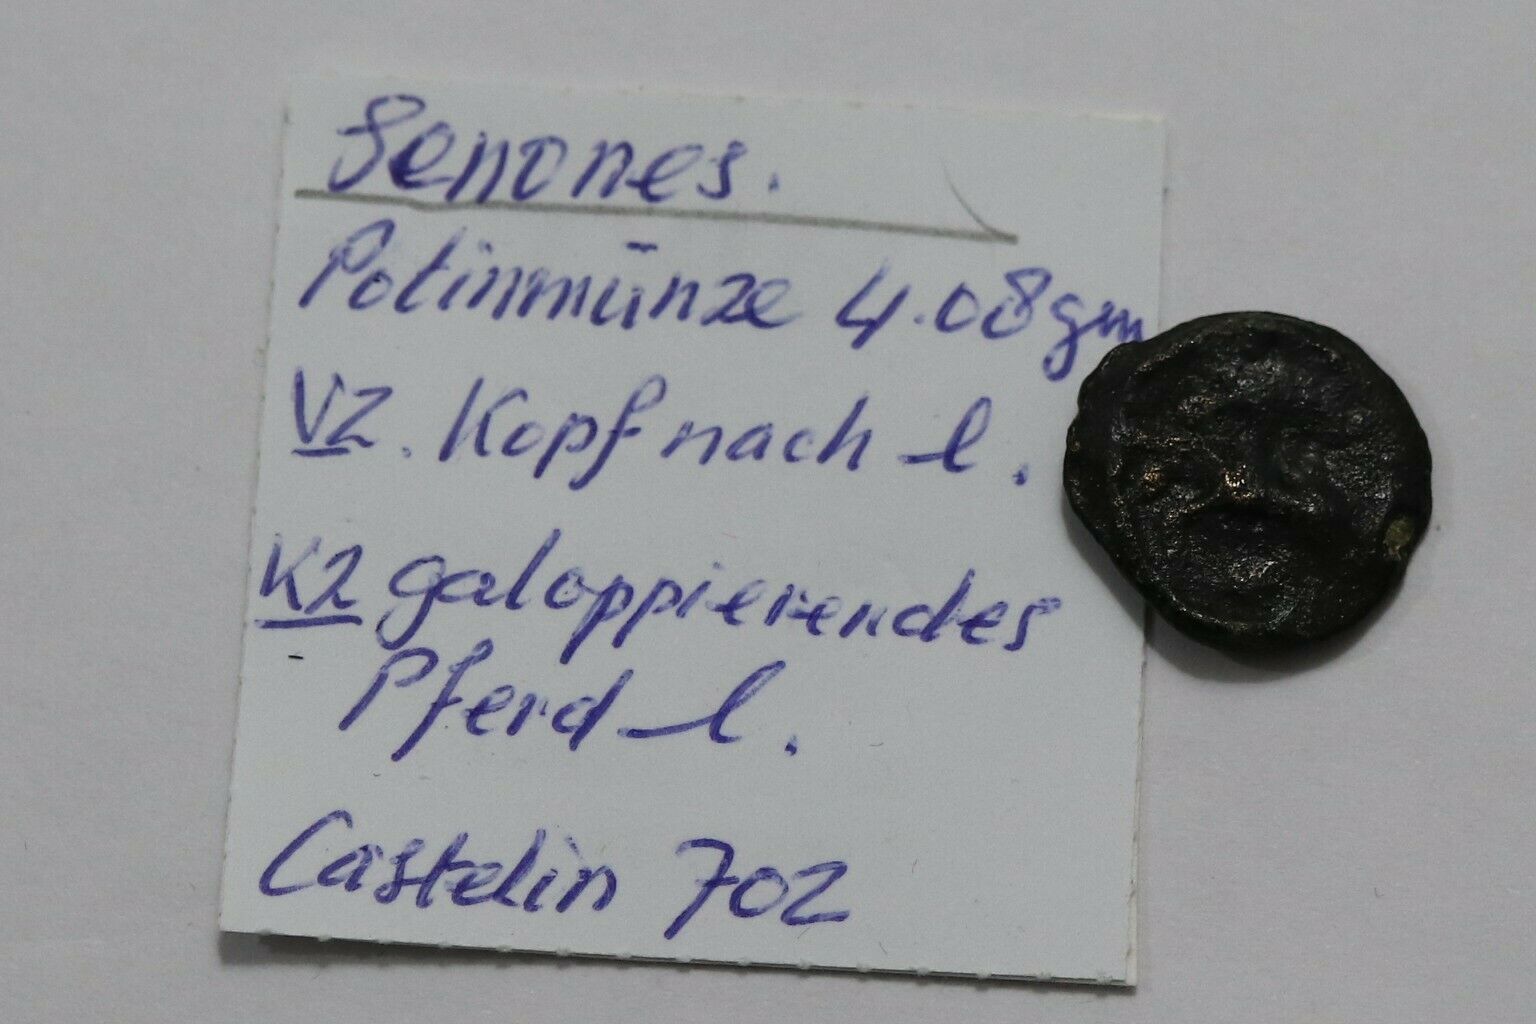 Senones.
Potinmünze 4.08gm
VZ. Kopf nach l.
KZ galoppierendes
Pferd l.
Castelin 702